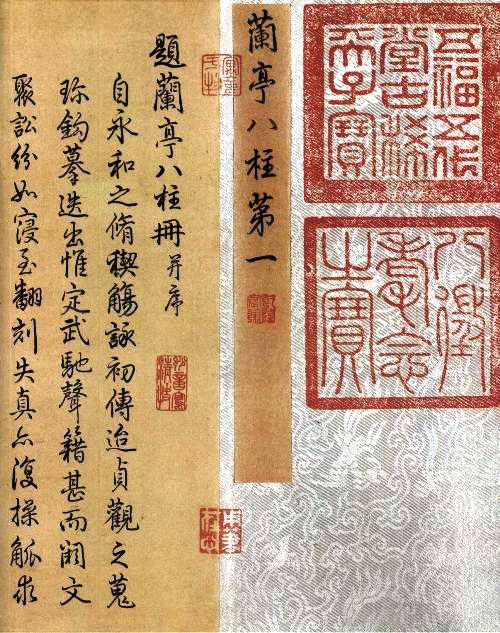 五福五代
堂古稀
天子寶
八徵
耄念
之寶
蘭亭八柱第一
題蘭亭八柱冊 并序
自永和之脩稧觴詠初傳迨貞觀之蒐
珎鈎摹迭出惟定武馳聲籍甚而闕文
聚訟紛如寖至翻刻失真亦復操觚求